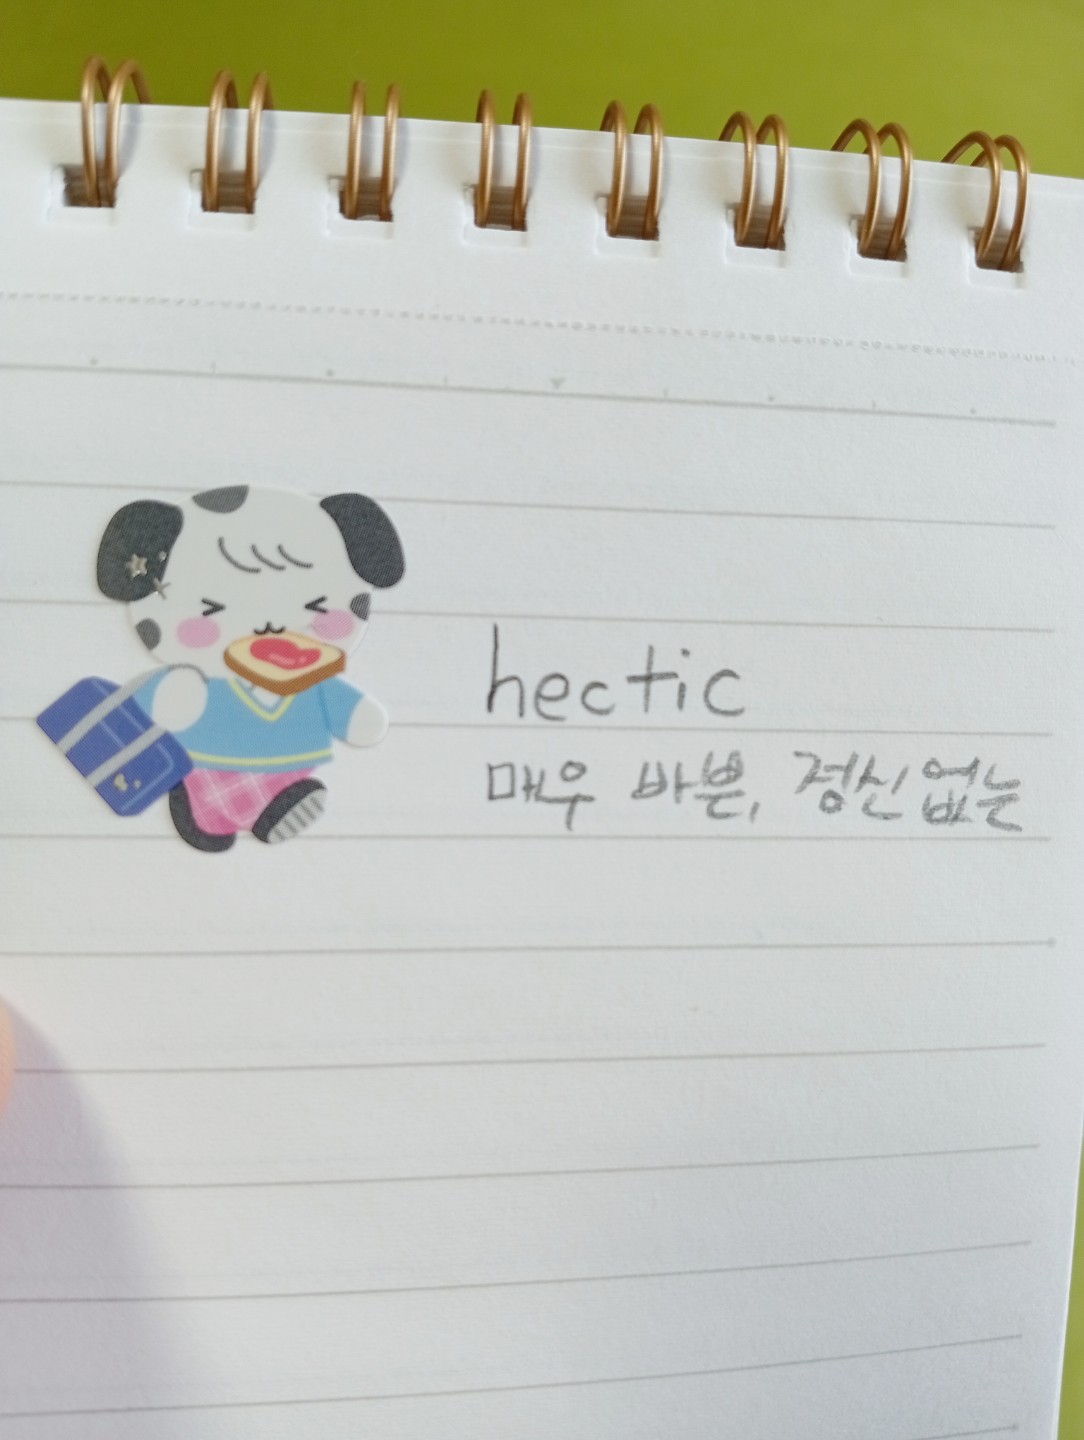 hectic
매우 바쁜, 정신없는